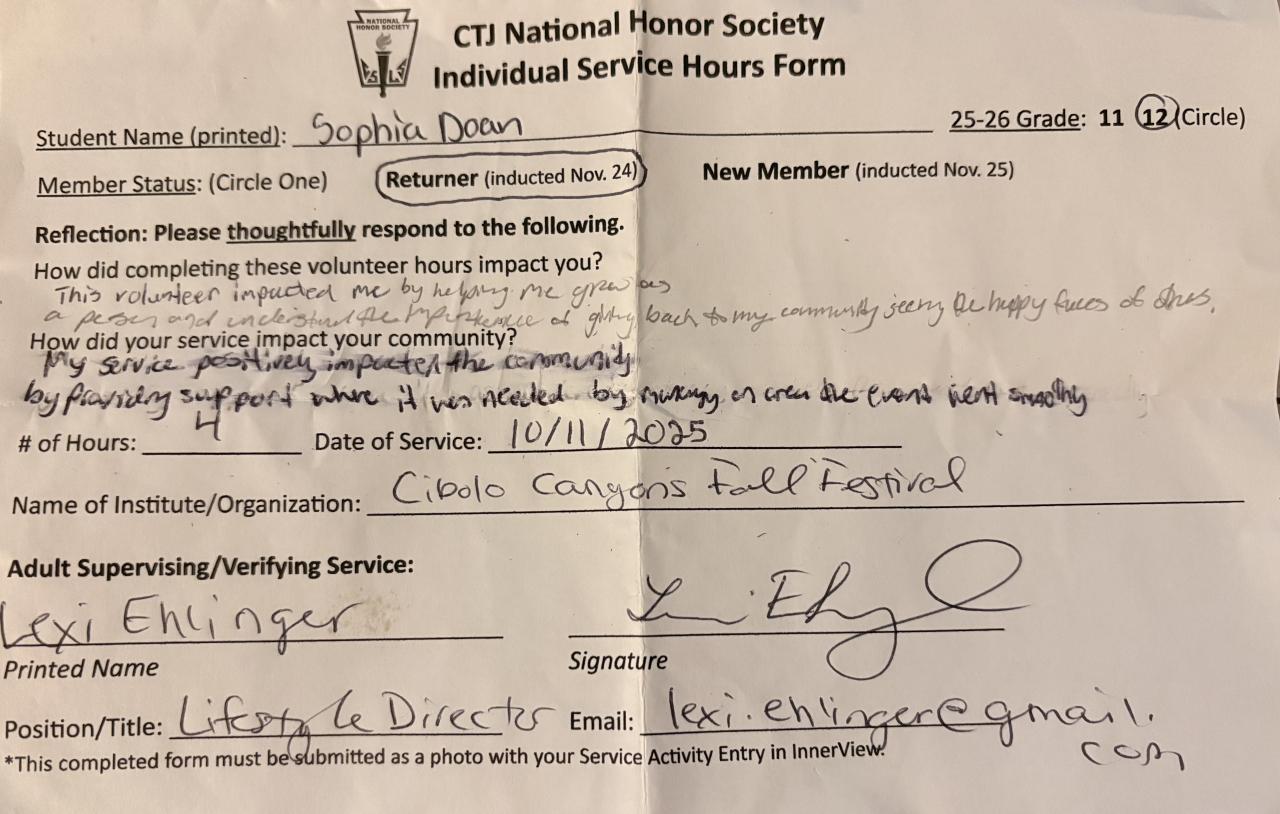 NATIONAL HONOR SOCIETY
CTJ National Honor Society
Individual Service Hours Form
Student Name (printed): Sophia Doan 25-26 Grade: 11 12 (Circle)
Member Status: (Circle One) Returner (inducted Nov. 24) New Member (inducted Nov. 25)
Reflection: Please thoughtfully respond to the following.
How did completing these volunteer hours impact you?
This volunteer impacted me by helping me grow as
a person and understand the importance of giving back to my community seeing the happy faces of
How did your service impact your community?
My service positively impacted the community
by providing support where it was needed by the event went smoothly
# of Hours: 4 Date of Service: 10/11/2025
Name of Institute/Organization: Cibolo Canyons Fall Festival
Adult Supervising/Verifying Service:
Lexi Ehlinger
Printed Name Signature
Position/Title: Lifestyle Director Email: lexi.ehlinger@gmail.
com
*This completed form must be submitted as a photo with your Service Activity Entry in InnerView.